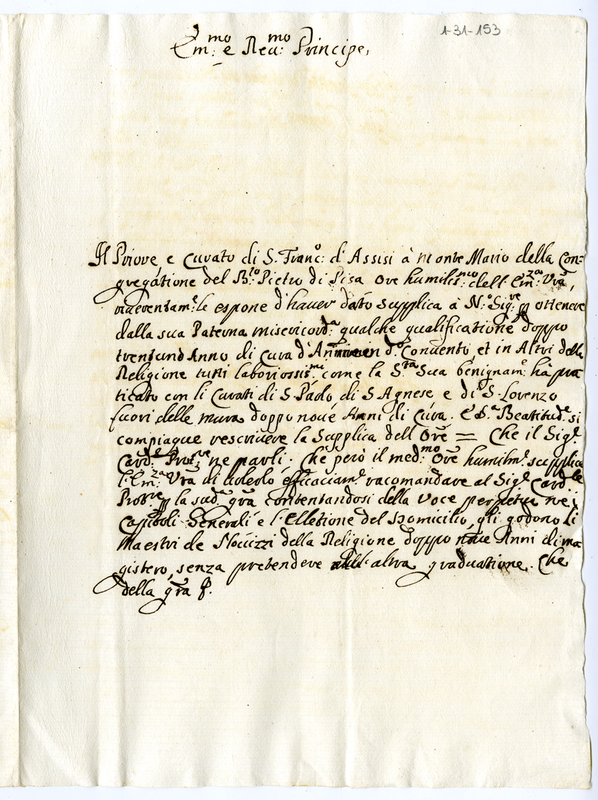 1-31-153
Em:mo e Reu:mo Principe,
Il Priore, e Curato di S. Franc:o d'Assisi à Monte Mario della Con-
gregatione del B:to Pietro di Pisa Ore humiliss:mo dell' Em:za Vra,
riuerentam:te espone d'hauer dato supplica à N:ro Sig:re p ottenere
dalla sua Paterna misericord:a qualche qualificatione doppo
trent'un'Anno di cura d'Anime in d:o Conuento, et in Altri della
Religione tutti laboriossis:mi come la S:tà Sua benignam:te hà pra
ticato con li Curati di S. Paolo di S. Agnese e di S. Lorenzo
fuori delle mura doppo noue Anni di Cura. E S:a Beatitud:e si
compiaque rescriuere la Supplica dell' Ore = Che il Sig:r
Card:le Prot:re ne parli. Che però il med:mo Ore humilm:te supplica
l'Em:za Vra di uolerlo efficaciam:te racomandare al Sig:r Card:le
Prot:re p la sud:a gra contentandosi della Voce perpetua nei
Capitoli Generali e l'Elletione del Domicilio, che godono li
Maestri de Nouizzi della Religione doppo noue Anni di ma
gistero, senza pretendere altra graduatione. Che
della gra &.